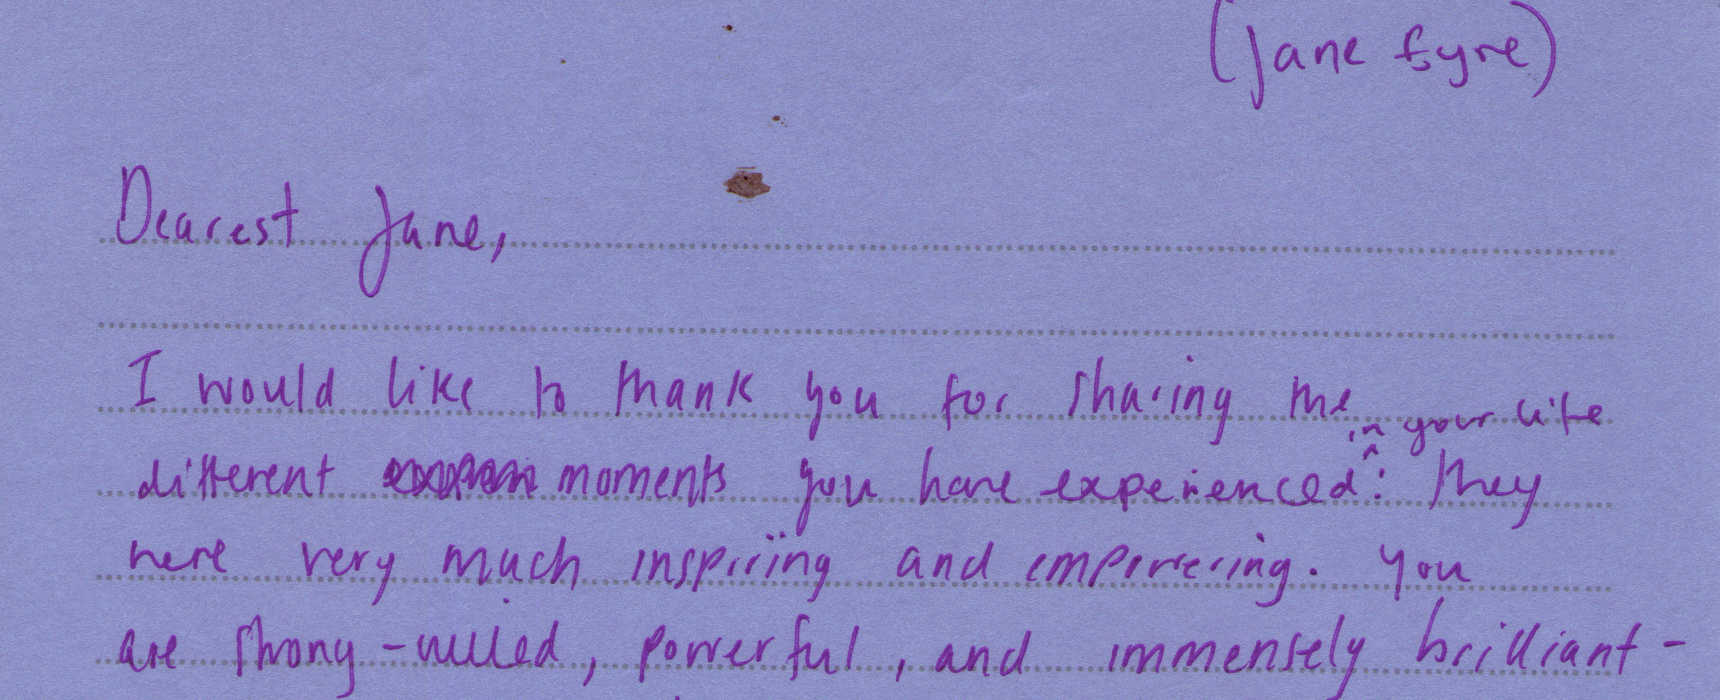 (Jane Eyre)
Dearest Jane,
I would like to thank you for sharing the
in your life
different moments you have experienced^: they
were very much inspiring and empowering. You
are strong-willed, powerful, and immensely brilliant-